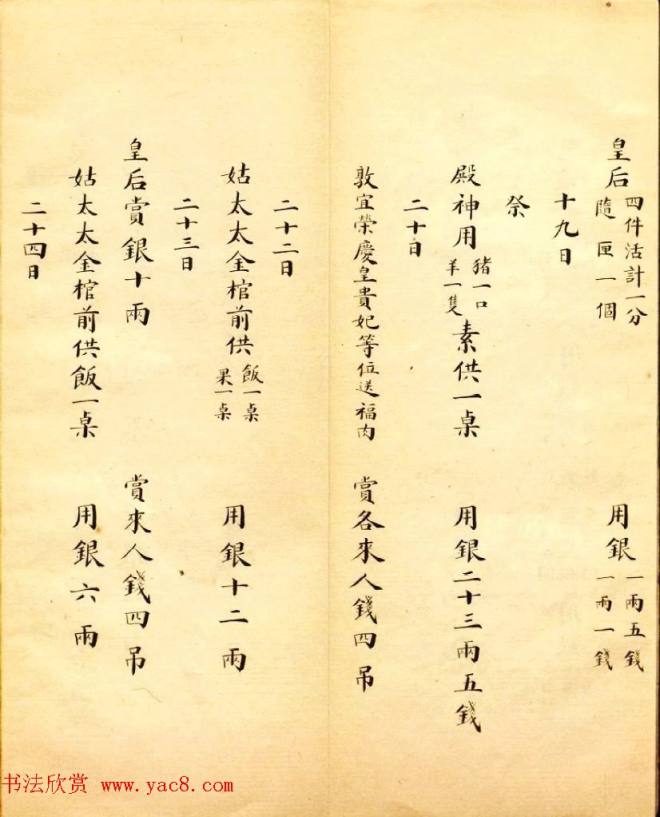 皇后四件活計一分隨匣一個 用銀一兩五錢一兩一錢
十九日
祭
殿神用豬一口羊一隻素供一桌 用銀二十三兩五錢
二十日
敦宜榮慶皇貴妃等位送福肉 賞各來人錢四吊
二十二日
姑太太金棺前供飯一桌果一桌 用銀十二兩
二十三日
皇后賞銀十兩 賞來人錢四吊
姑太太金棺前供飯一桌 用銀六兩
二十四日
书法欣赏 www.yac8.com